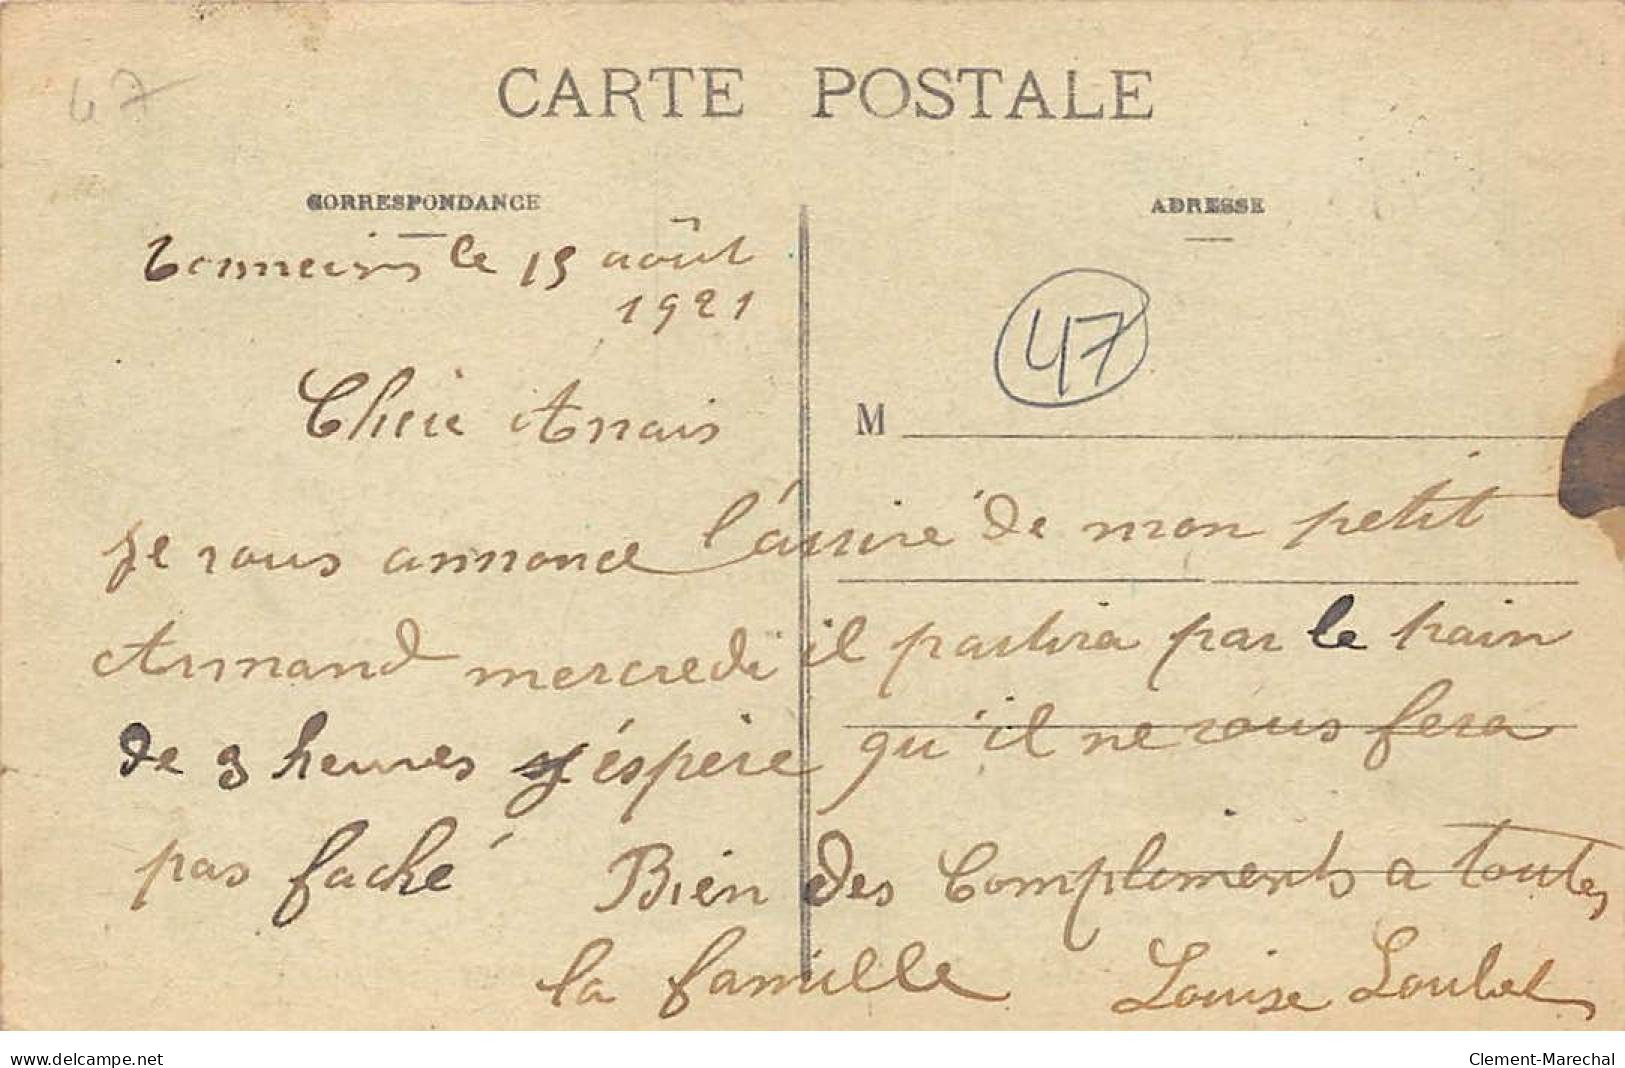 47
CARTE POSTALE
CORRESPONDANCE
ADRESSE
Tonneins le 15 août
1921
47
Cheie Anais
M
je vous annonce l'arrivé de mon petit
Armand mercredi il partira par le train
de 3 heures j'éspère qu'il ne vous fera
pas faché Bien des Compliments a toutes
la famille Louise Loubet
www.delcampe.net
Clement-Marechal